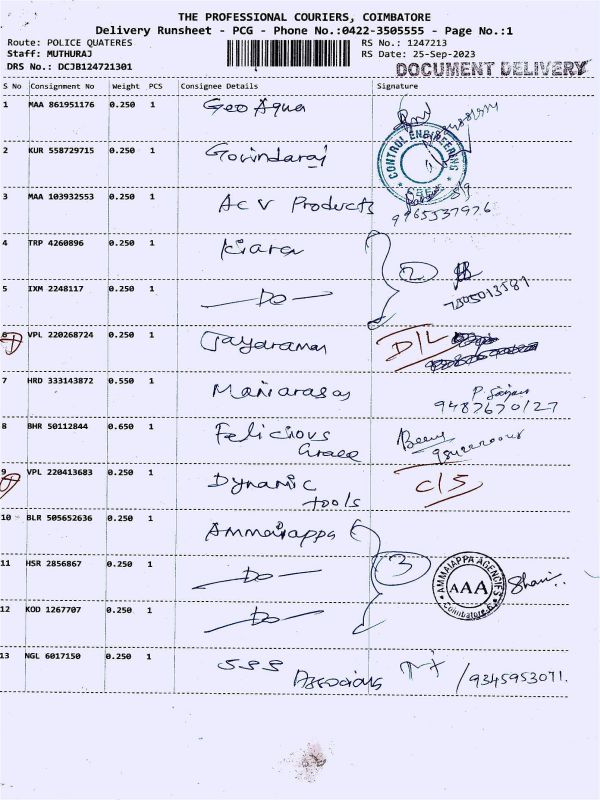 THE PROFESSIONAL COURIERS, COIMBATORE
Delivery Runsheet - PCG - Phone No.:0422-3505555 - Page No.:1
Route: POLICE QUATERES RS No.: 1247213
Staff: MUTHURAJ RS Date: 25-Sep-2023
DRS No.: DCJB124721301 DOCUMENT DELIVERY
S No Consignment No Weight PCS Consignee Details Signature
1 MAA 861951176 0.250 1 Geo Aqua
CONTROL ENGINEERING
2 KUR 558729715 0.250 1 Govindaraj
3 MAA 103932553 0.250 1 AcV Products 9965537976
4 TRP 4260896 0.250 1 Kiara
2
5 IXM 2248117 0.250 1 - Do - 7305013581
6 VPL 220268724 0.250 1 Jayaraman D/L
7 HRD 333143872 0.550 1 Maniarasas
9487670127
8 BHR 50112844 0.650 1 Felicious
Grace
9 VPL 220413683 0.250 1 Dynamic C/S
tools
10 BLR 505652636 0.250 1 Ammaiappa
11 HSR 2856867 0.250 1 - Do - 3
AMMAIAPPA AGENCIES
AAA
Coimbatore-6
12 KOD 1267707 0.250 1 - Do -
13 NGL 6017150 0.250 1 SSS
/9345953071.